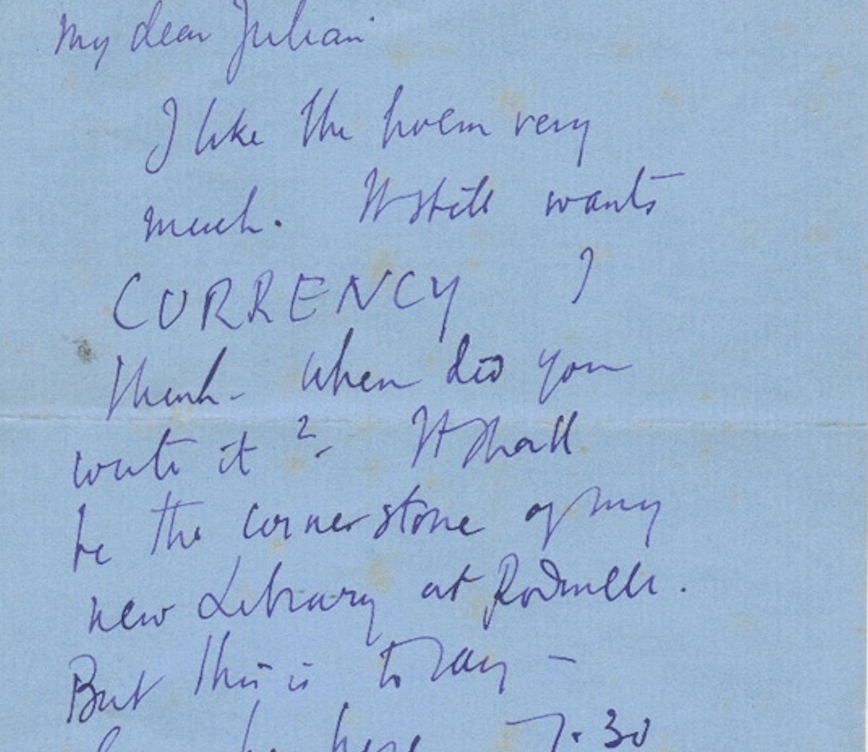 My dear Julian
I like the poem very
much. It still wants
CURRENCY I
think - When did you
write it? - It shall
be the cornerstone of my
new Library at Rodmell.
But this is to say -
be here 7.30